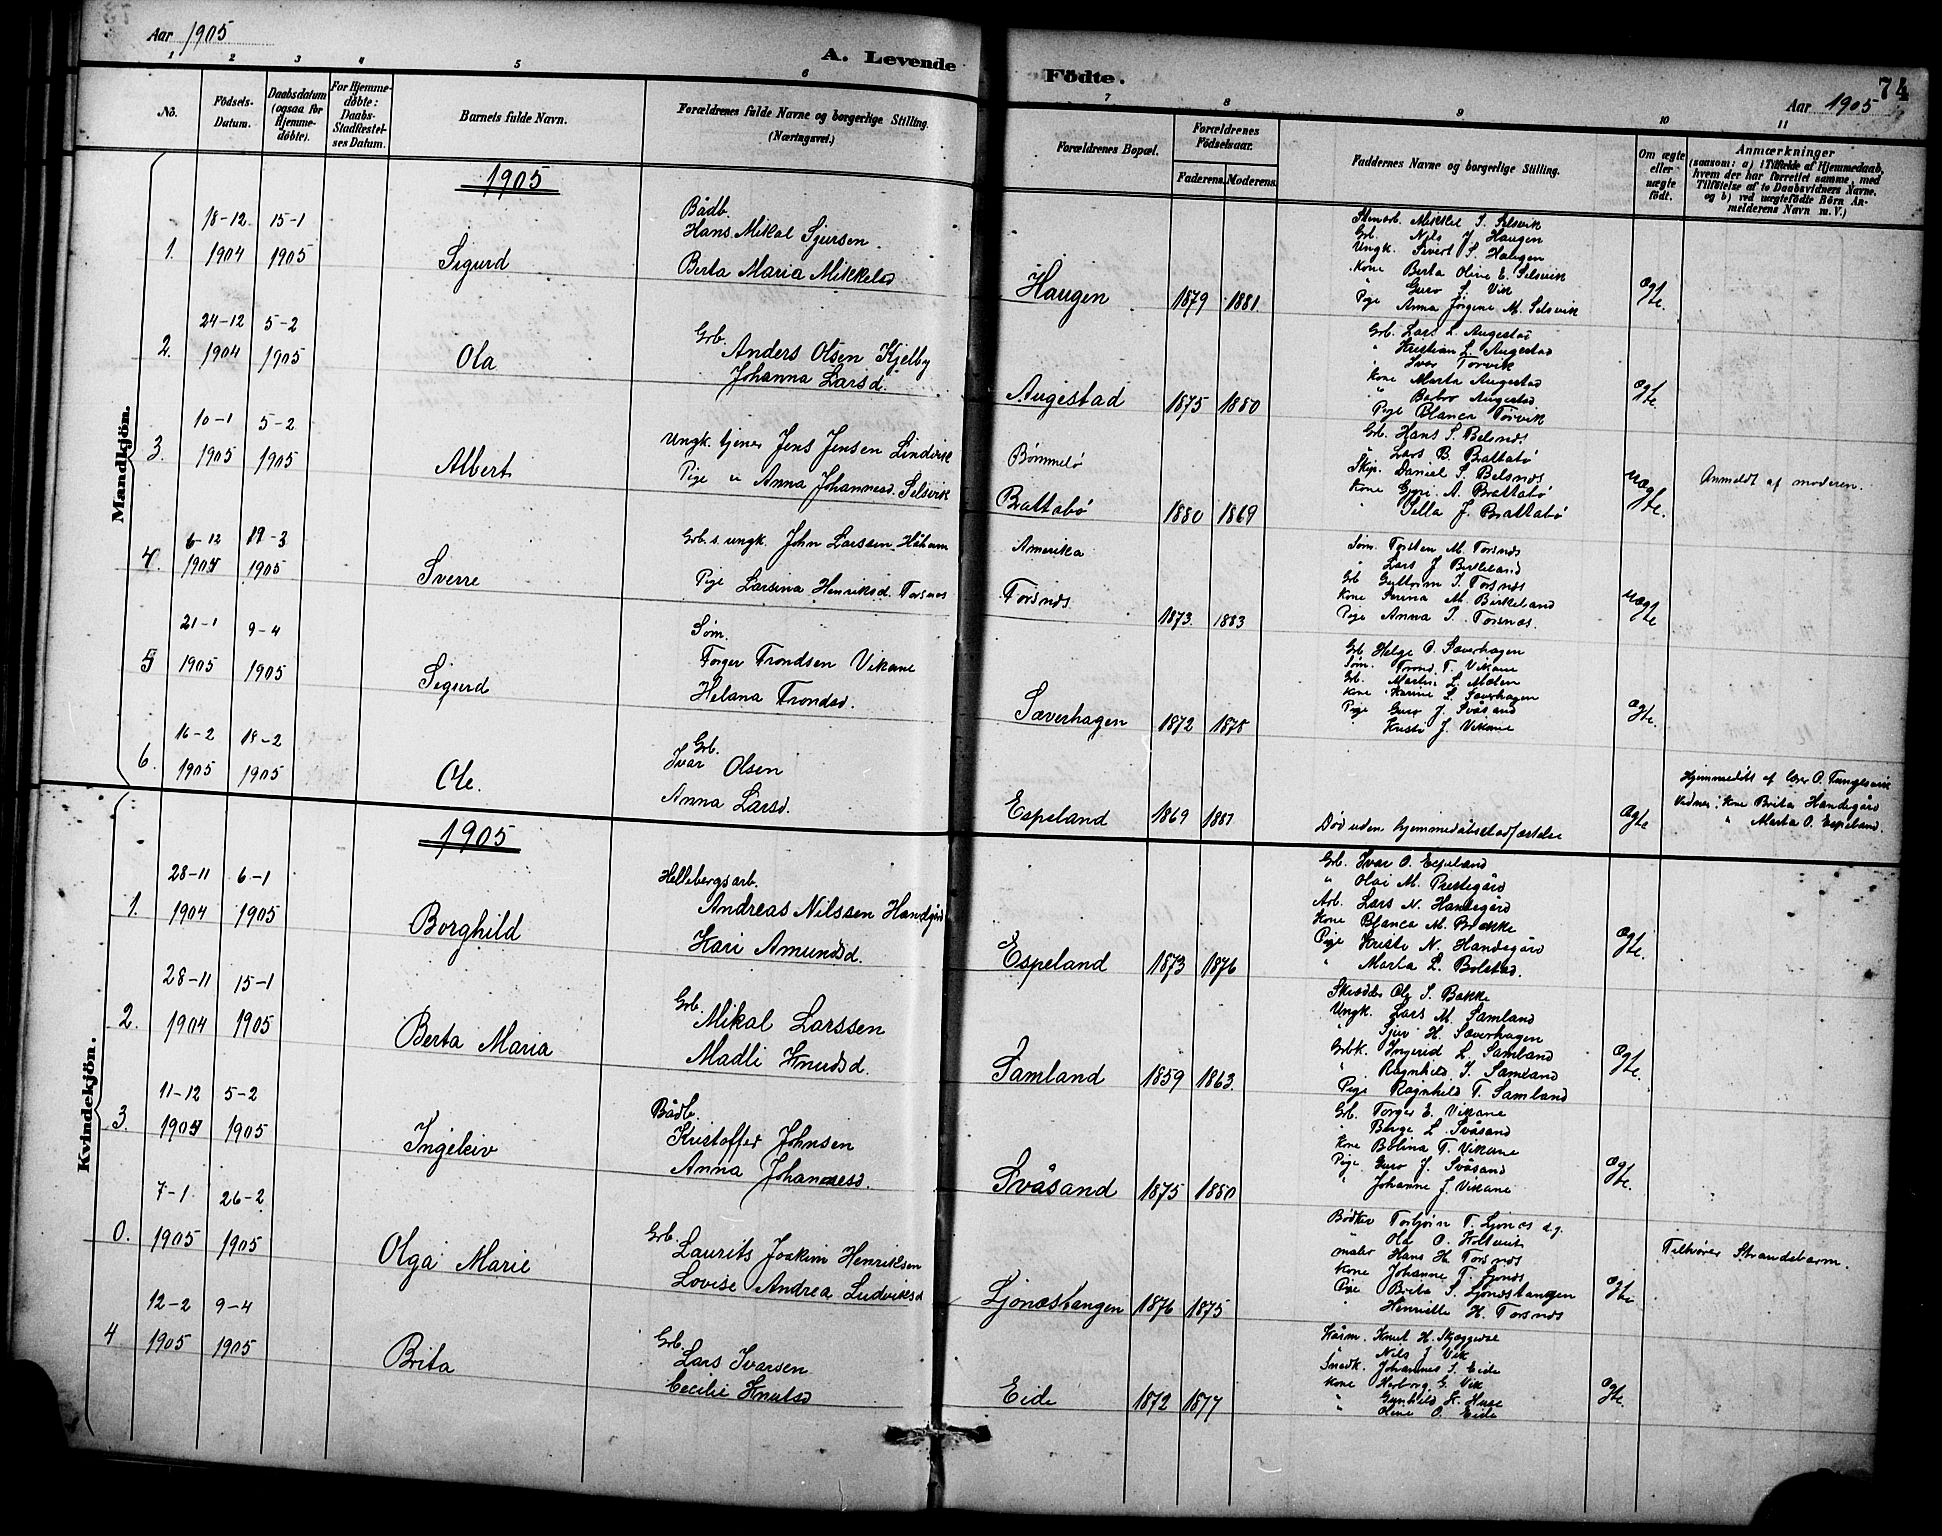 Aar 1905
A. Levende Födte.
74
Aar 1905
1 2 3 4 5 6 7 8 9 10 11
No.
Födsels-Datum.
Daabsdatum (ogsaa for Hjemme-døbte).
For Hjemme-døbte: Daabs-Stadfæstel-ses Datum.
Barnets fulde Navn.
Forældrenes fulde Navne og borgerlige Stilling. (Næringsvei.)
Forældrenes Bopæl.
Forældrenes Födselsaar.
Faderens. Moderens.
Faddernes Navne og borgerlige Stilling.
Om ægte eller uægte født.
Anmærkninger
(saasom: a) i Tilfælde af Hjemmedaab, hvem der har forrettet samme, med Tilføielse af to Daabsvidners Navne, og b) ved uægtefödte Börn An-melderens Navn m. V.)
Mandkjön.
1905
1. 18-12 1904 15-1 1905 Sigurd
Bådb. Hans Mikal Sjursen.
Berta Maria Mikkelsd
Haugen 1879 1881
Mikkel S. Selsvik
Grb. Nils J. Haugen
Ungk. Sivert S. Haugen
Kone Berta Oline E. Selsvik
" Guro S. Vik
Pige Anna Jørgine M. Selsvik
Ægte.
2. 24-12 1904 5-2 1905 Ola
Grb. Anders Olsen Kjelby
Johanna Larsd.
Augestad 1875 1880
Grb. Lars L. Augestad
" Kristian L. Augestad
" Ivar Torvik
Kone Marta Augestad
" Barbro Augestad
Pige Blanca Torvik
Ægte.
3. 10-1 1905 5-2 1905 Albert
Ungk. tjener Jens Jensen Lindvik
Pige " Anna Johannesd. Selsvik
Bømmelø
Brattabø 1880 1869
Grb. Hans S. Belsnes
" Lars B. Brattabø
Skip. Daniel S. Belsnes
Kone Gyri A. Brattabø
" Sella J. Brattabø
Uægte.
Anmeldt af moderen.
4. 6-12 1904 19-3 1905 Sverre
Grb. s. ungk. John Larssen Håheim
Pige Larsina Henriksd. Torsnes
Amerika
Torsnes. 1873. 1883
Søm. Torsten M. Torsnes
" Lars J. Birkeland
Grb Guttorm I. Torsnes
Kone Serina M. Birkeland
Pige Anna I. Torsnes.
Uægte
5 21-1 1905 9-4 1905 Sigurd
Søm.
Torger Trondsen Vikane
Helana Trondsd.
Sæverhagen 1872 1878
Grb Helge O. Sæverhagen
Søm. Trond T. Vikane
Grb. Martin L. Mælen
Kone Karine S. Sæverhagen
Pige Guro J. Svåsand
Kristi J. Vikane
Ægte.
6. 16-2 1905 18-2 1905 Ole.
Grb.
Ivar Olsen
Anna Larsd.
Espeland 1869 1881
Død uden hjemmedåbsstadfæstelse
Ægte
Hjemmedøbt af lærer O. Tungesvik
Vidner: Kone Brita Handegård
" Marta O. Espeland.
Kvindekjön.
1905
1. 28-11 1904 6-1 1905 Borghild
Hellebergsarb.
Andreas Nilssen Handegård
Kari Amundsd.
Espeland 1873 1876
Grb. Ivar O. Espeland
" Olai M. Prestegård
Arb. Lars N. Handegård
Kone Blanca M. Brække
Pige Kristi N. Handegård
" Marta L. Bolstad.
Ægte.
2. 28-11 1904 15-1 1905 Berta Maria
Grb. Mikal Larssen
Madli Knudsd.
Samland 1859 1863
Skrædder Ole S. Bakke
Ungk. Lars M. Samland
" Sjur H. Sæverhagen
Grbk. Ingerid L. Samland
" Ragnhild I. Samland
Pige Ragnhild T. Samland
Ægte.
3. 11-12 1904 5-2 1905 Ingeleiv
Bådb.
Kristoffer Johnsen
Anna Johannesd.
Svåsand 1875 1880
Grb. Torger E. Vikane
" Børge L. Svåsand
Kone Bolina T. Vikane
Pige Guro J. Svåsand
" Johanne J. Vikane
Ægte.
0. 7-1 1905 26-2 1905 Olga Marie
Grb. Laurits Joakim Henriksen
Lovise Andrea Ludviksd
Ljonestangen 1876 1875
Bødker Torbjørn T. Ljones
" Ola O. Kolltveit
maler Hans H. Torsnes
Kone Johanne T. Ljones
Pige Brita S. Ljonestangen
" Henrielle H. Torsnes
Ægte
Tilhører Strandebarm.
4 12-2 1905 9-4 1905 Brita
Grb. Lars Ivarsen
Cecilie Knutsd
Eide 1872 1877
Knut H. Skjeggedal
" Nils J. Vik
Snedk. Johannes S. Eide
Kone Herborg G. Vik
" Gunhild K. Huse
" Oline O. Eide
Ægte.